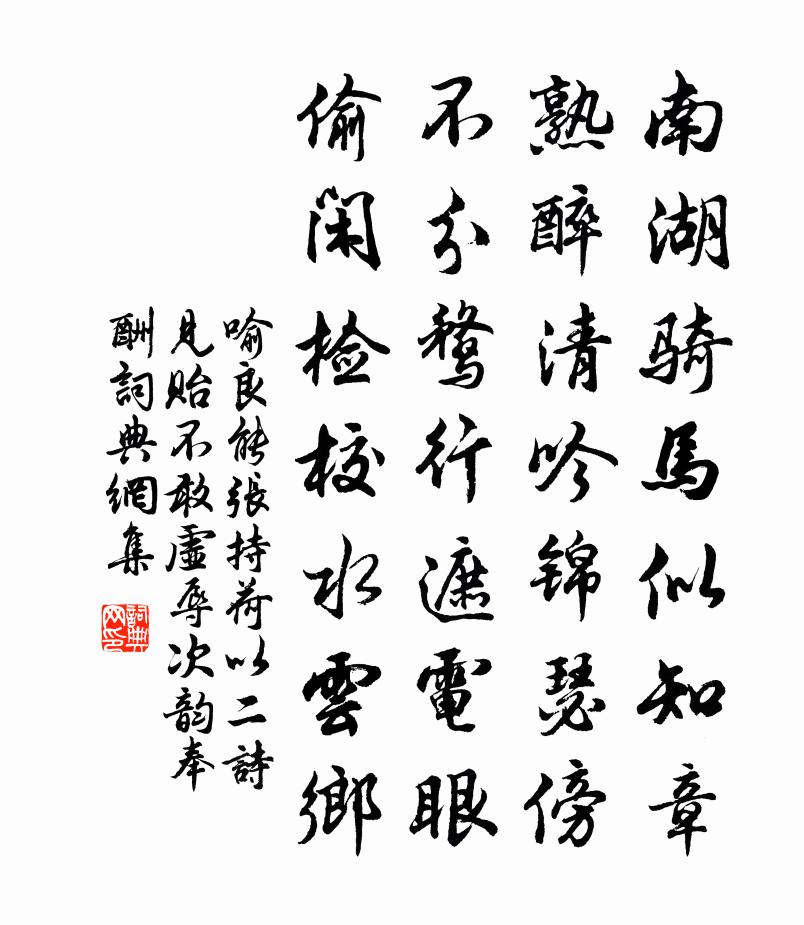 南湖騎馬似知章
熟醉清吟錦瑟傍
不分鶩行遮電眼
偷閑檢校水雲鄉
喻良能張持荷以二詩
見貽不敢虛辱次韵奉
酬詞典網集
詞典網印